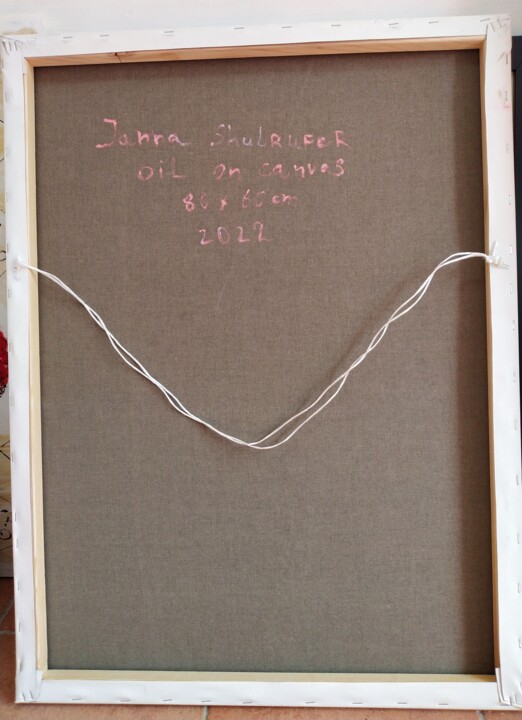 Janna ShulRUFER
oil on canvas
80 x 60 cm
2022